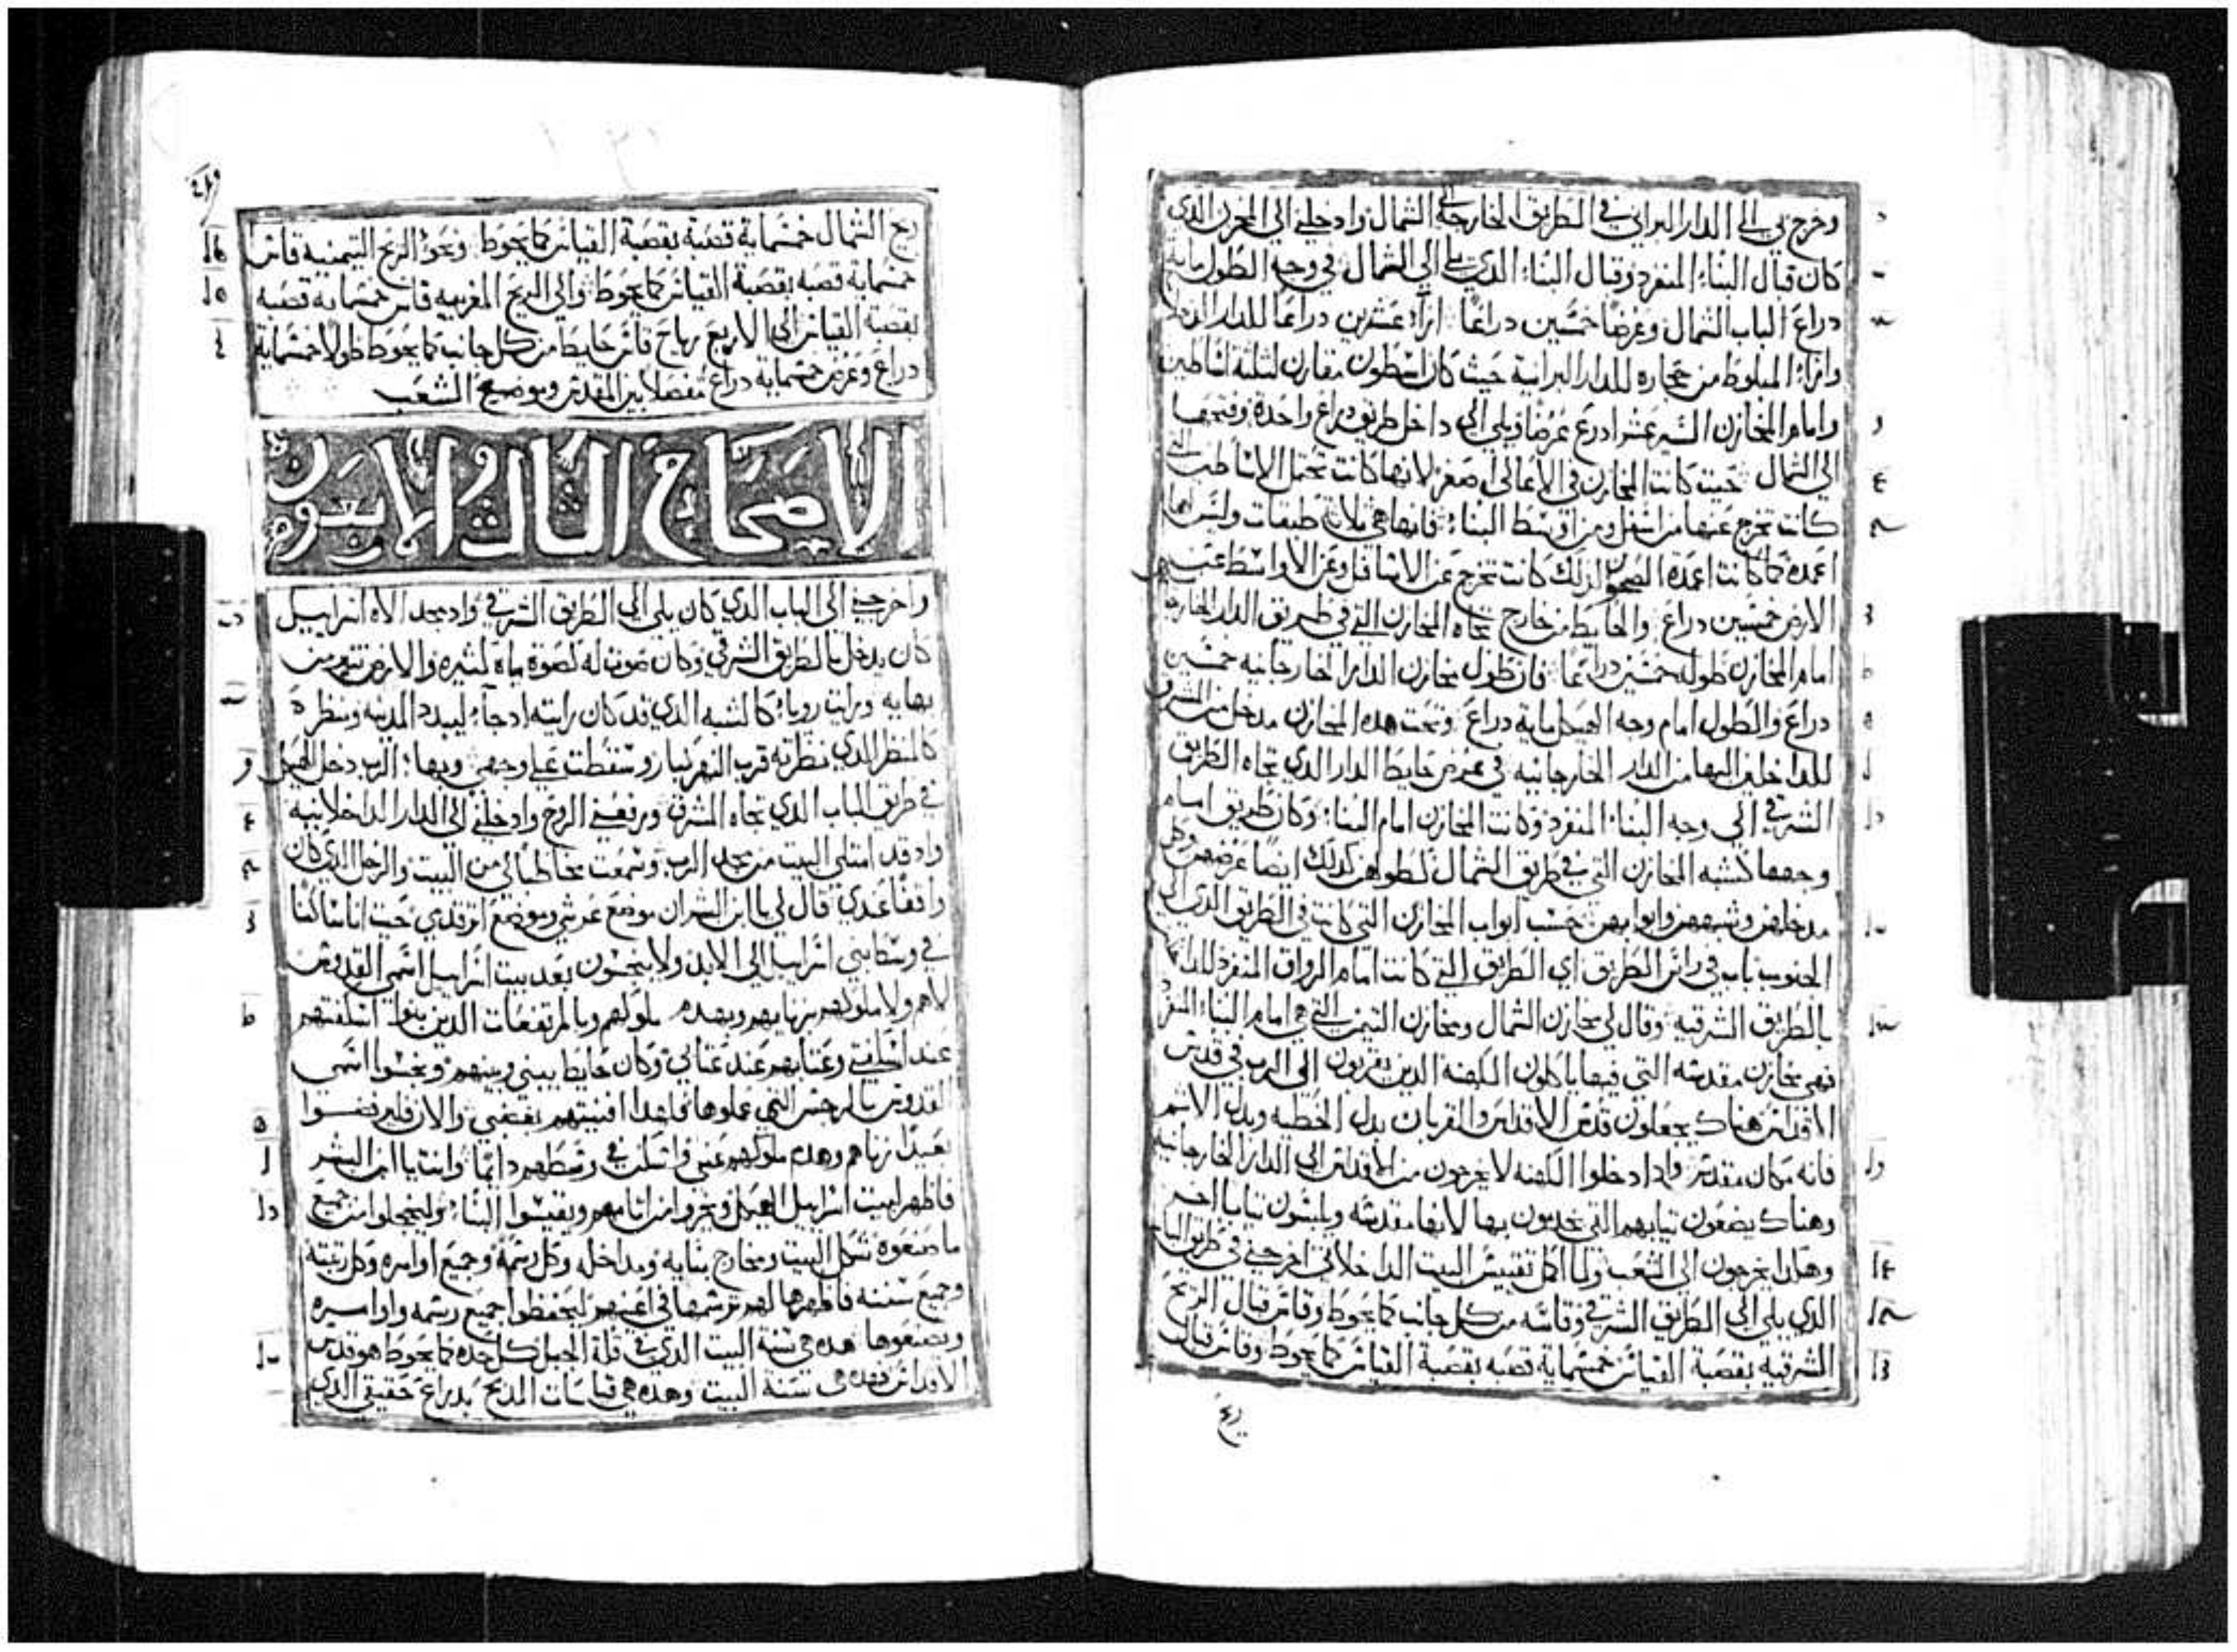 وخرج بي الى الدار البراني في الطريق الخارجة الى الشمال وادخلني الى المخزن الذي
كان قبال البناء المنفرد وقبال البناء الذي يلي الى الشمال في وجه الطول ماية
دراع الباب الشمال وعرضا خمسين دراعا ازاء عشرين دراعا للدار
وازاء المبلوط من حجاره للدار البرانية حيث كان اسطون مقارن لثلثة اساطين
وامام المخازن عشر ادرع عرضا ويلي الى داخل طريق دراع واحدة وفتحها
الى الشمال حيث كانت المخازن في الاعالي اصغر لانها كانت تحتمل الاساطين التي
كانت تخرج عنها من اسفل ومن اوسط البناء فانها هي ثلاث طبقات وليس لها
اعمدة كما كانت اعمدة لذلك كانت تخرج عن الاسافل وعن الاواسط عن
الارض خمسين دراع والحايط من خارج تجاه المخازن التي في طريق الدار الخارجة
امام المخازن طوله خمسين دراعا فان طول مخازن الدار الخارجانيه خمسين
دراع والطول امام وجه الهيكل ماية دراع وتحت هده المخازن مدخل من المشرق
للداخلين اليها من الدار الخارجانيه في عرض حايط الدار الذي تجاه الطريق
الشرقي الى وجه البناء المنفرد وكانت المخازن امام البناء وكان طريق امام
وجهها كشبه المخازن التي في طريق الشمال كطولهن كدلك ايضا عرضهن وكل
مدخلهن وشبههن وابوابهن حسب ابواب المخازن التي كانت في الطريق الذي الى
الجنوب باب في راس الطريق اي الطريق التي كانت امام الرواق المنفرد
بالطريق الشرقيه وقال لي مخازن الشمال ومخازن التيمن التي هي امام البناء المنفرد
فهي مخازن مقدسه التي فيها ياكلون الكهنه الدين يقربون الى الرب في قدس
الاقداس هناك يجعلون قدس الاقداس والقربان بدل الخطيه وبدل الاثم
فانه مكان مقدس وادا دخلوا الكهنه لا يخرجون من الاقداس الى الدار الخارجانيه
وهناك يضعون تيابهم التي يخدمون بها لانها مقدسه ويلبسون تيابا اخر
وهكدا يخرجون الى الشعب ولما اكمل تفتيش البيت الداخلاني اخرجني في طريق الباب
الذي يلي الى الطريق الشرقي وقاسه من كل جانب كما يحوط وقاس قبال الريح
الشرقيه بقصبة القياس خمسماية قصبه بقصبة القياس كما يحوط وقاس قبال
ريح
ريح الشمال خمسماية قصبة بقصبة القياس كما يحوط ونحو الريح التيمنيه قاس
خمسماية قصبه بقصبة القياس كما يحوط والى الريح المغربيه قاس خمسماية قصبه
بقصبة القياس الى الاربع رياح قاس حايط من كل جانب كما يحوط طولا خمسماية
دراع وعرض خمسماية دراع مفصلا بين المقدس وموضع الشعب
الاصحاح الثالث والاربعون
واخرجني الى الباب الذي كان يلي الى الطريق الشرقي واد بمجد الاه اسراييل
كان يدخل بالطريق الشرقي وكان صوت له كصوت مياه كثيره والارض تنور من
بهايه ورايت رويا كالشبه الذي قد كان رايته اد جاء ليبدد المدينه ومنظره
كالمنظر الذي نظرته قرب النهر كبار وسقطت على وجهي وبهاء الرب دخل الهيكل
في طريق الباب الذي تجاه المشرق ورفعني الروح وادخلني الى الدار الداخلانيه
واد قد امتلى البيت من مجد الرب وسمعت مخاطبا لي من البيت والرجل الذي كان
واقفا عندي قال لي يا ابن البشر ان موضع عرشي وموضع اتر قدمي حيث انا ساكنا
في وسط بني اسراييل الى الابد ولا ينجسون بعد بيت اسراييل اسمي القدوس
لا هم ولا ملوكهم بزناهم وبهده ملوكهم وبالمرتفعات الدين بنوا اسكفتهم
عند اسكفتي وعتابهم عند عتابي وكان حايط بيني وبينهم ونجسوا اسمي
القدوس بالرجس التي عملوها فلهدا افنيتهم بغضبي والان فليرفضوا
بعيدا زناهم وهده ملوكهم عني واسكن في وسطهم دايما وانت يا ابن البشر
فاظهر لبيت اسراييل الهيكل وليخزوا من اتامهم ويقيسوا البناء وليخجلوا من جميع
ما صنعوه شكل البيت ومخارج بنايه ومداخله وكل رسمه وجميع اوامره وكل رتبته
وجميع سننه فاظهرها لهم ترسمها في اعينهم ليحفظوا جميع رسمه واوامره
ويصنعوها هده هي سنة البيت الذي في قلة الجبل كل حده كما يحوط هو قدس
الاقداس فهده هي سنة البيت وهده هي قياسات المدبح بدراع حقيقي الذي